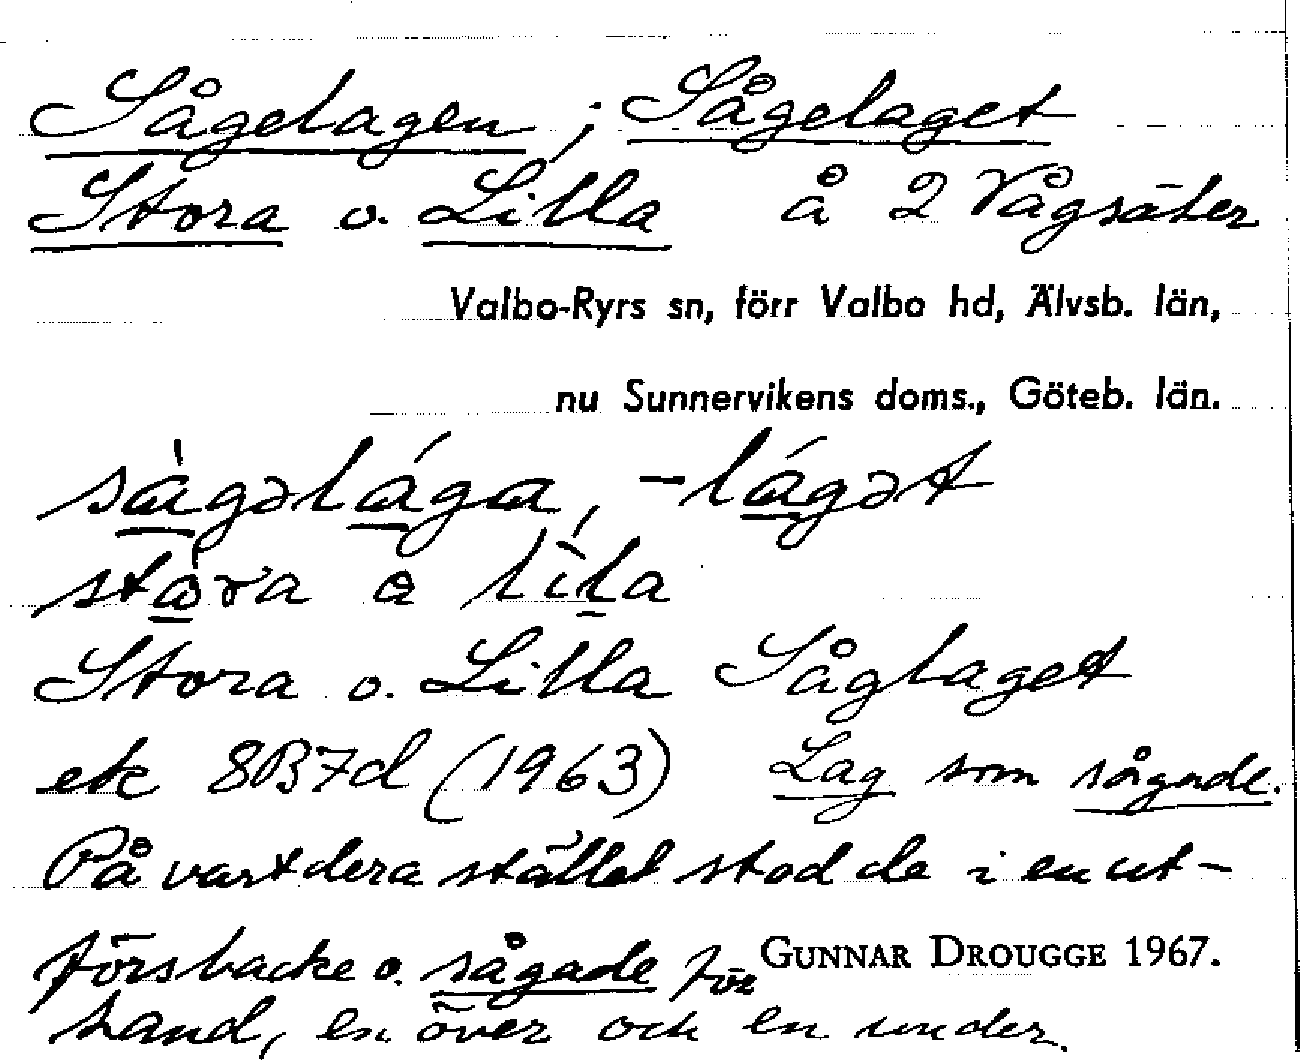 Sågelagen ; Sågelaget
Stora o. Lilla å 2 Vågsäter
Valbo-Ryrs sn, förr Valbo hd, Älvsb. län,
nu Sunnervikens doms., Göteb. län.
Stora o. Lilla Såglaget
ek 8B7d (1963) Lag som sågade.
På vartdera stället stod de i en ut-
försbacke o. sågade för
GUNNAR DROUGGE 1967.
hand, en över och en under.